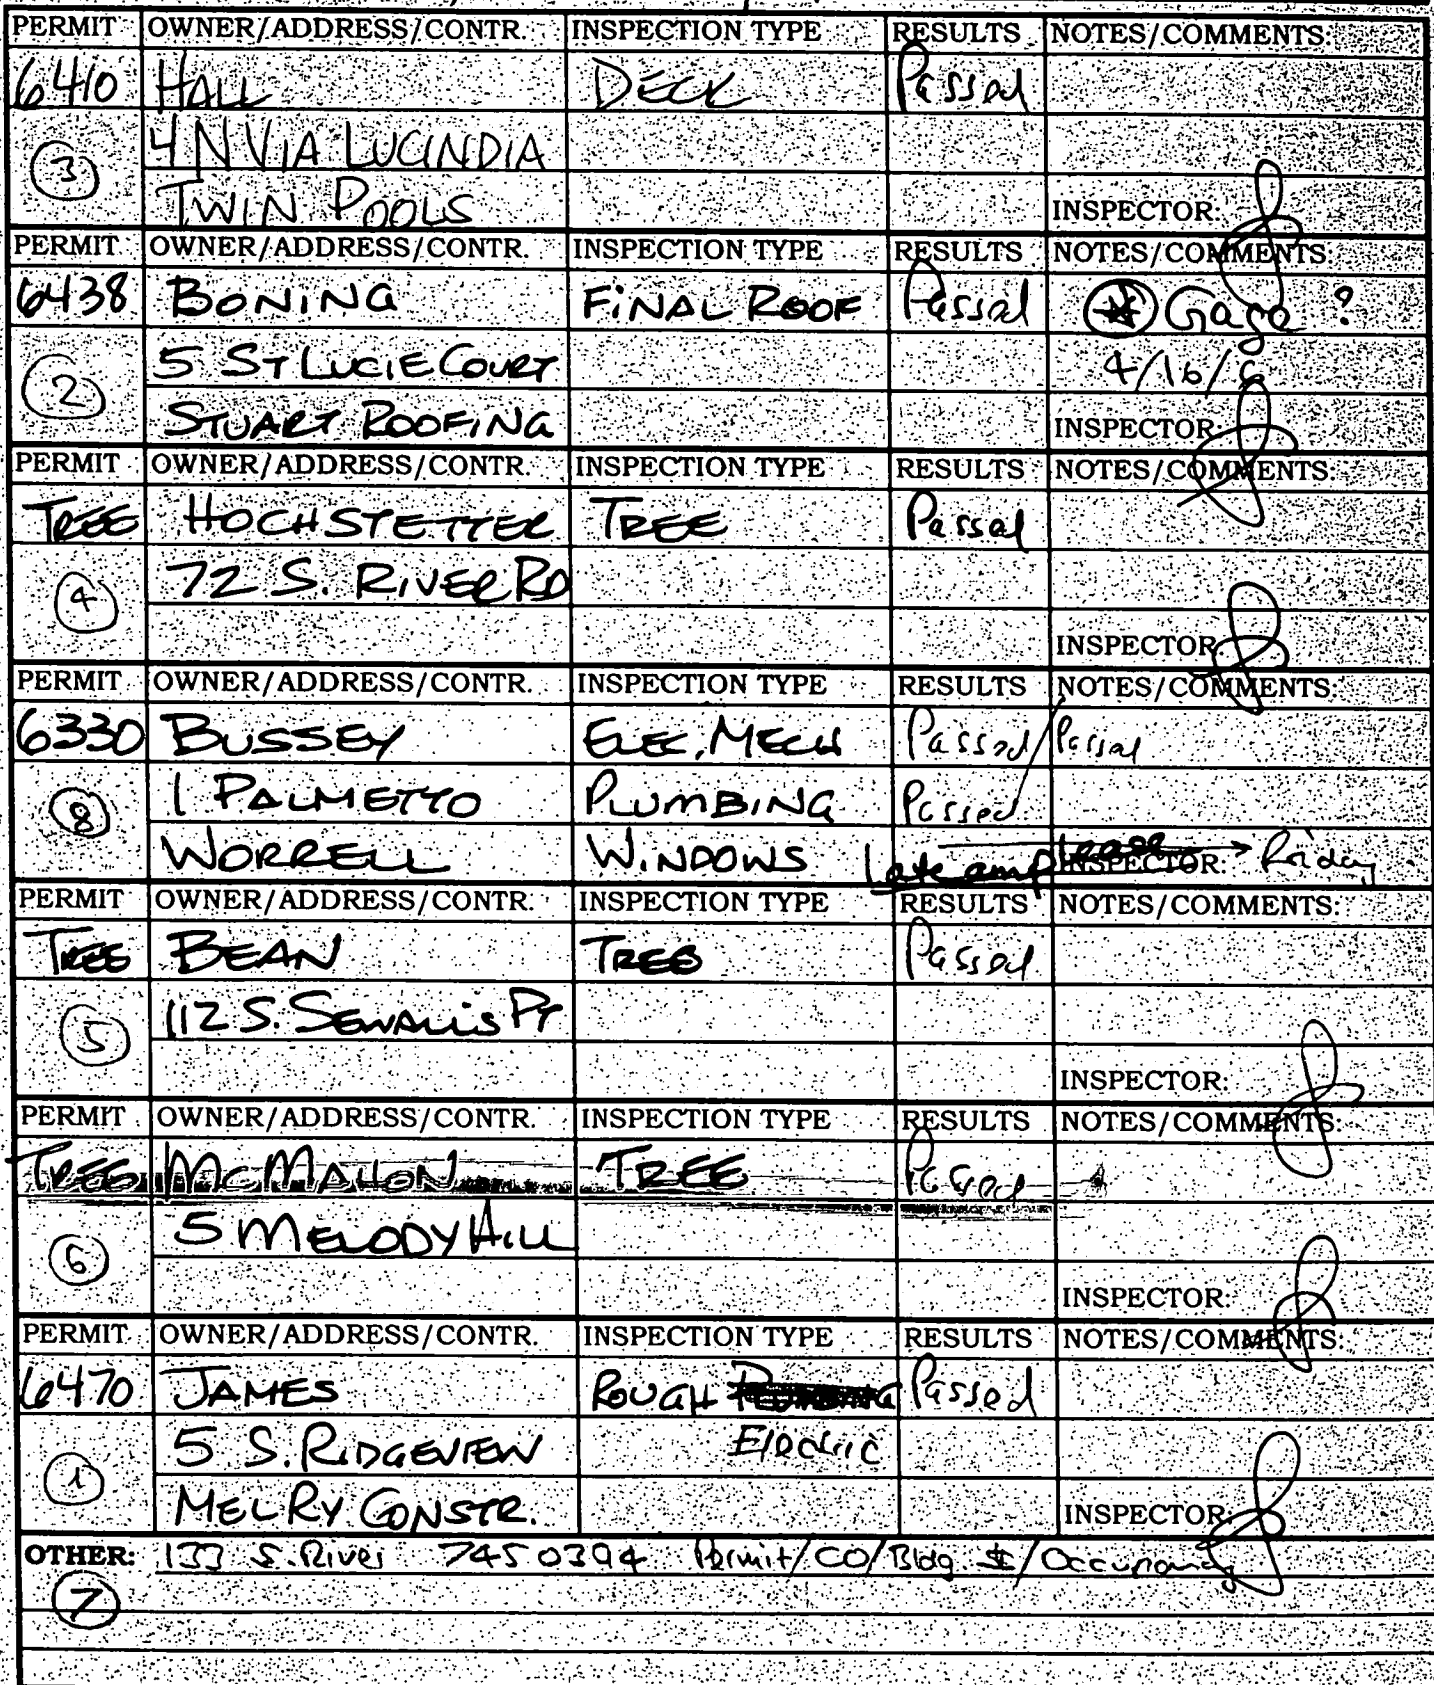 PERMIT OWNER/ADDRESS/CONTR. INSPECTION TYPE RESULTS NOTES/COMMENTS:
6410 HALL DECK Passed
③ 4 N VIA LUCINDIA
TWIN POOLS INSPECTOR:
PERMIT OWNER/ADDRESS/CONTR. INSPECTION TYPE RESULTS NOTES/COMMENTS:
6438 BONING FINAL ROOF Passed Gage ?
② 5 ST LUCIE COURT 4/16/
STUART ROOFING INSPECTOR:
PERMIT OWNER/ADDRESS/CONTR. INSPECTION TYPE RESULTS NOTES/COMMENTS:
TREE HOCHSTETTER TREE Passed
④ 72 S. RIVER RD
INSPECTOR:
PERMIT OWNER/ADDRESS/CONTR. INSPECTION TYPE RESULTS NOTES/COMMENTS:
6330 BUSSEY ELEC, MECH Passed Passed
⑧ 1 PALMETTO PLUMBING Passed
WORRELL WINDOWS Late am please INSPECTOR: Friday
PERMIT OWNER/ADDRESS/CONTR. INSPECTION TYPE RESULTS NOTES/COMMENTS:
TREE BEAN TREE Passed
⑤ 112 S. SEWALLS PT
INSPECTOR:
PERMIT OWNER/ADDRESS/CONTR. INSPECTION TYPE RESULTS NOTES/COMMENTS:
TREE MCMAHON TREE Passed
⑥ 5 MELODY HILL
INSPECTOR:
PERMIT OWNER/ADDRESS/CONTR. INSPECTION TYPE RESULTS NOTES/COMMENTS:
6470 JAMES ROUGH Passed
① 5 S. RIDGEVIEW Electric
MELRY CONSTR. INSPECTOR:
OTHER: 133 S. River 745 0394 Permit/CO/Bldg #/Occupancy
⑦